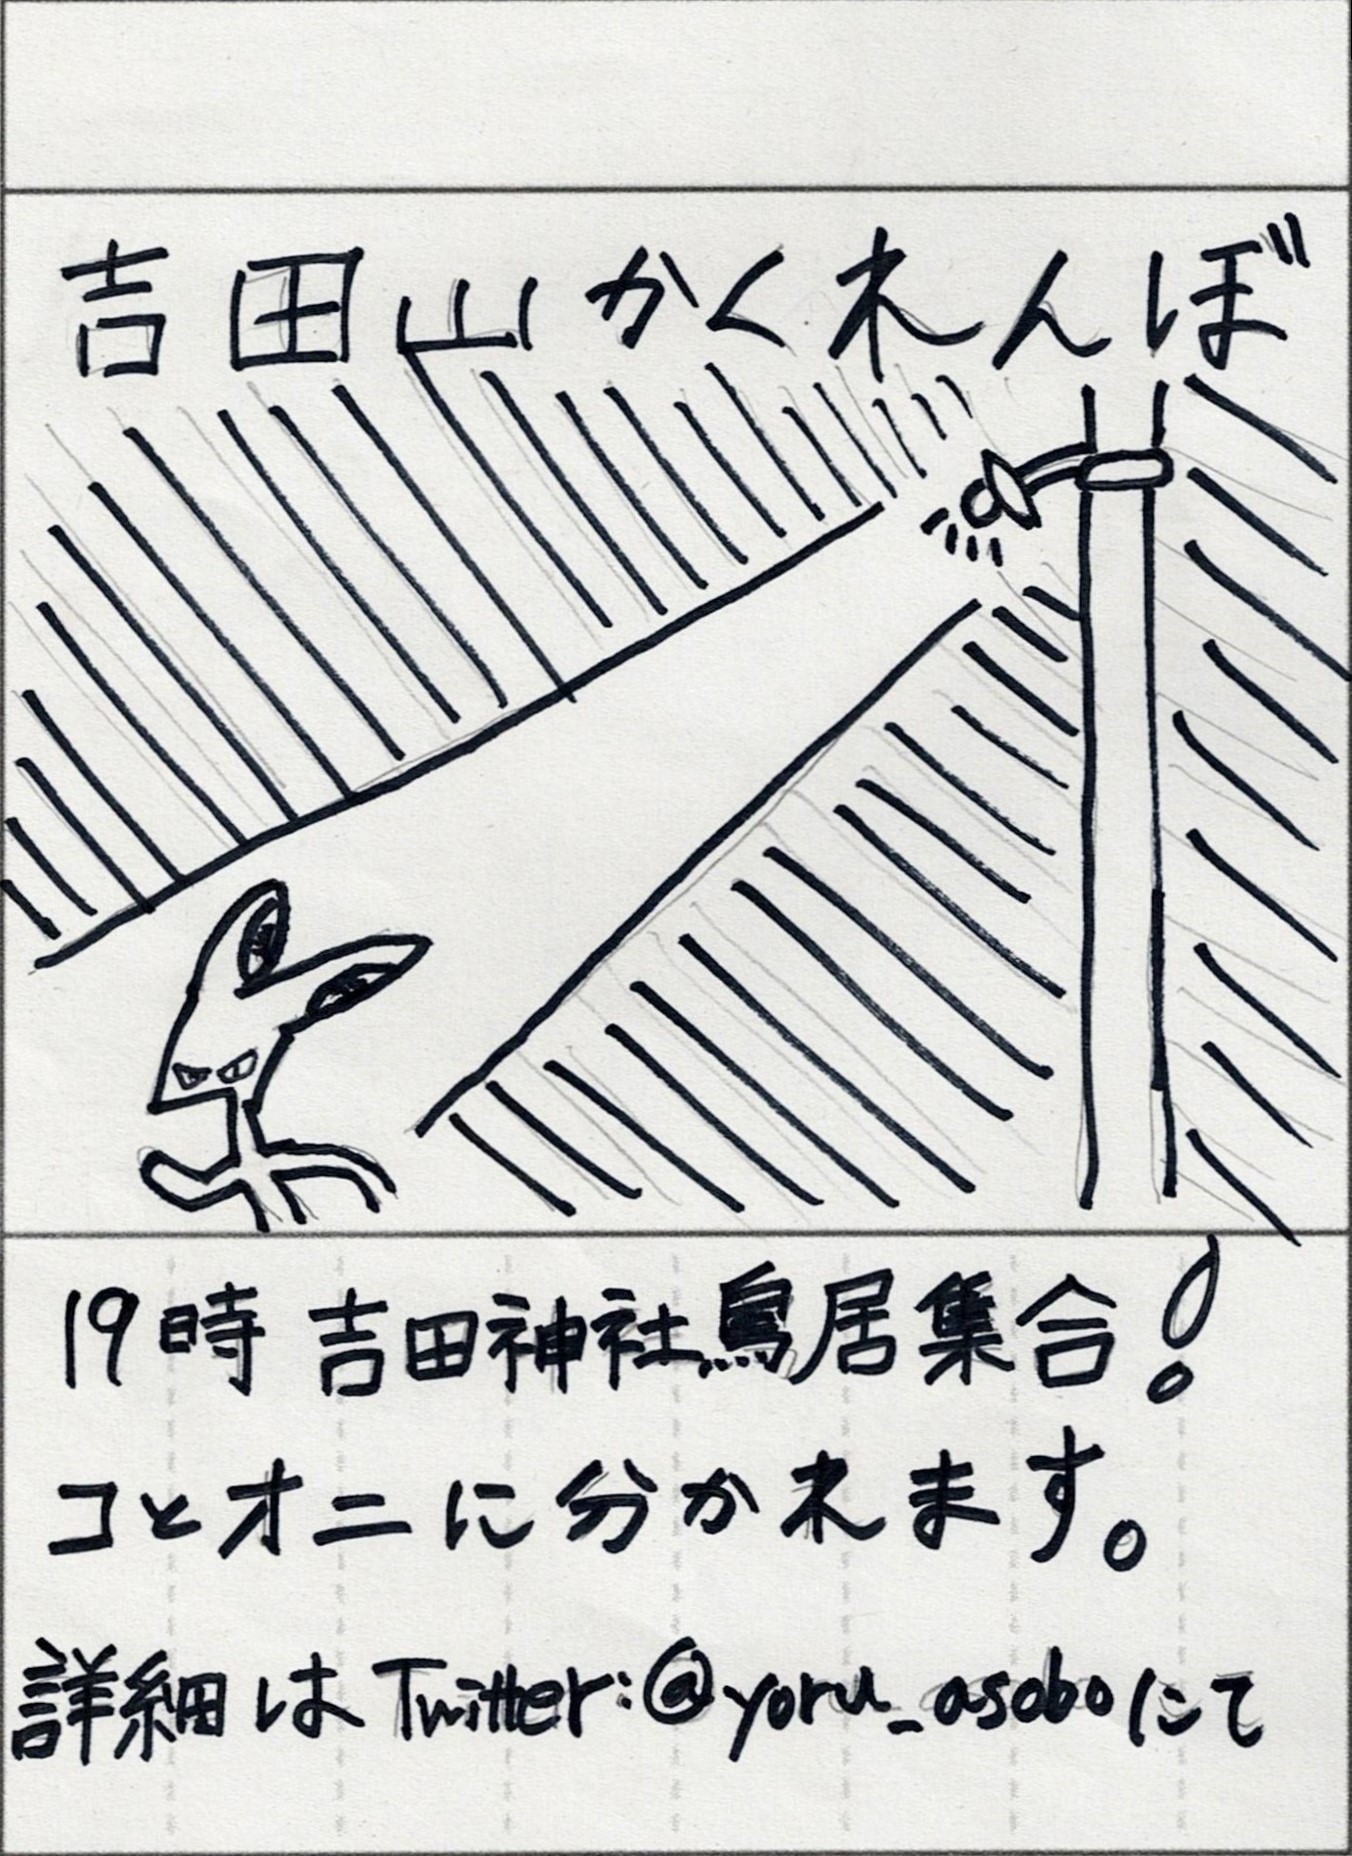 吉田山かくれんぼ
19時 吉田神社鳥居集合!
コとオニに分かれます。
詳細はTwitter:@yoru_asoboにて